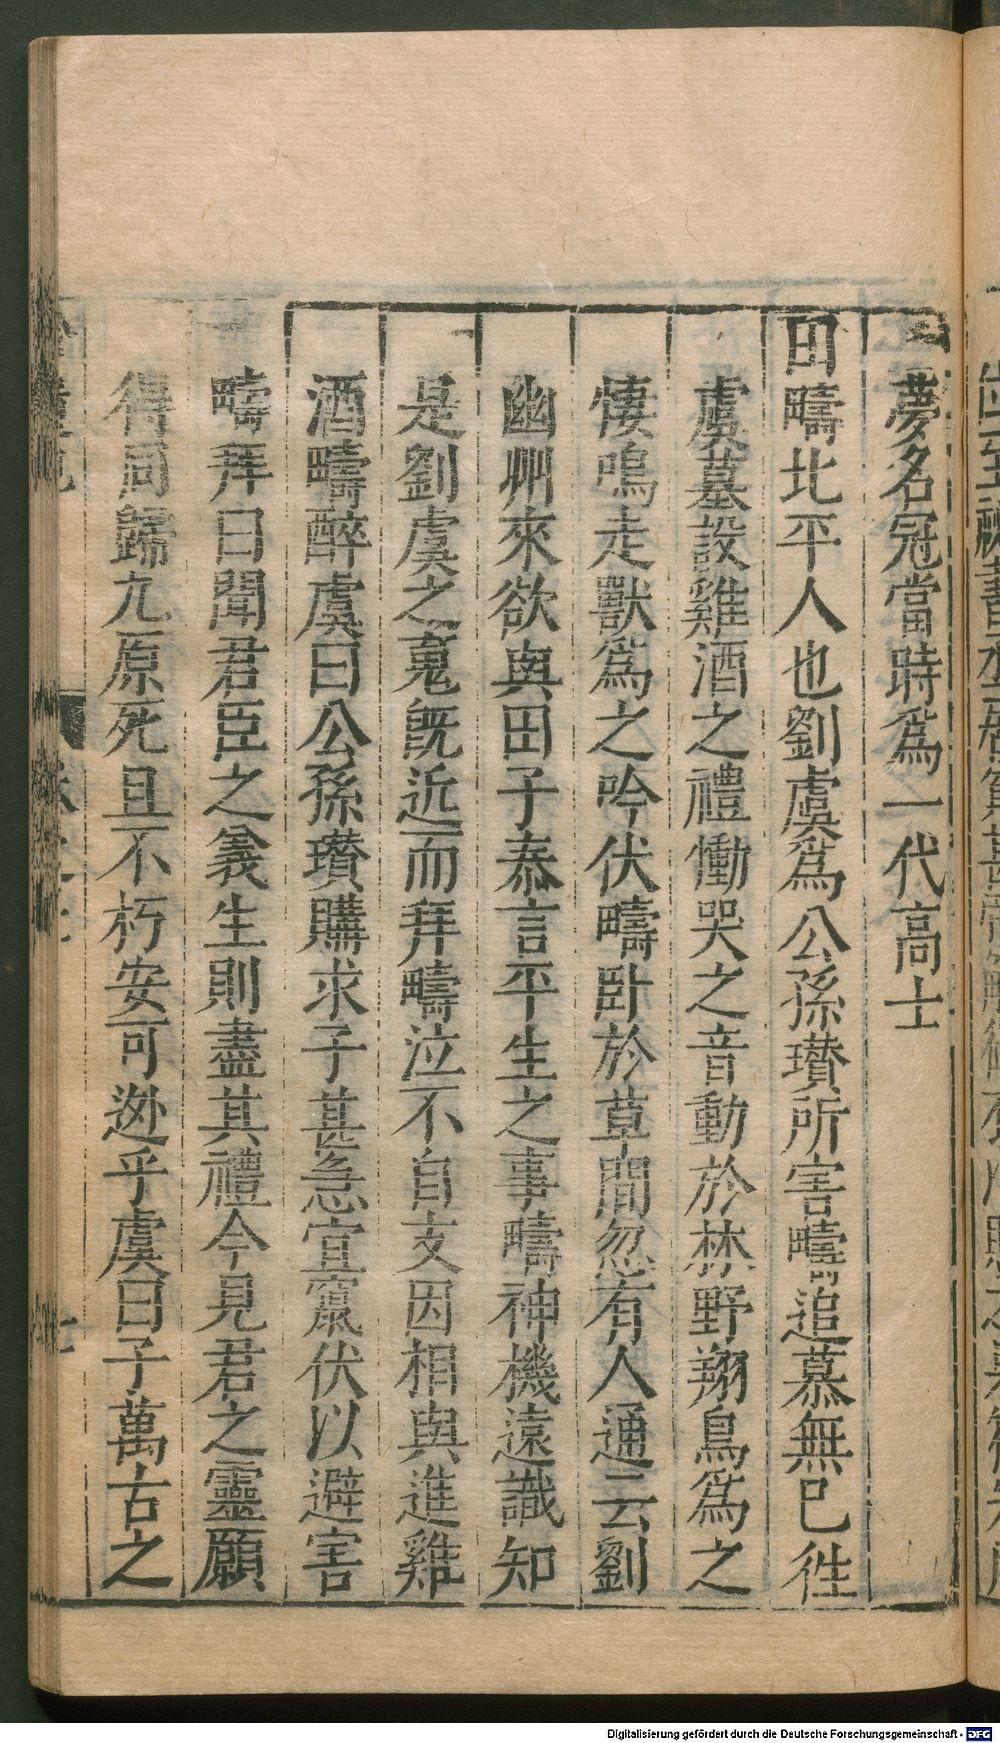 夢名冠當時爲一代高士
田疇北平人也劉虞爲公孫瓚所害疇追慕無已徃
虞墓設雞酒之禮慟哭之音動於林野翔鳥爲之
悽鳴走獸爲之吟伏疇卧於草間忽有人通云劉
幽州來欲與田子泰言平生之事疇神機遠識知
是劉虞之䰟旣近而拜疇泣不自支因相與進雞
酒疇醉虞曰公孫瓚購求子甚急宜竄伏以避害
疇拜曰聞君臣之義生則盡其禮今見君之靈願
得同歸九原死且不朽安可逃乎虞曰子萬古之
Digitalisierung gefördert durch die Deutsche Forschungsgemeinschaft - DFG